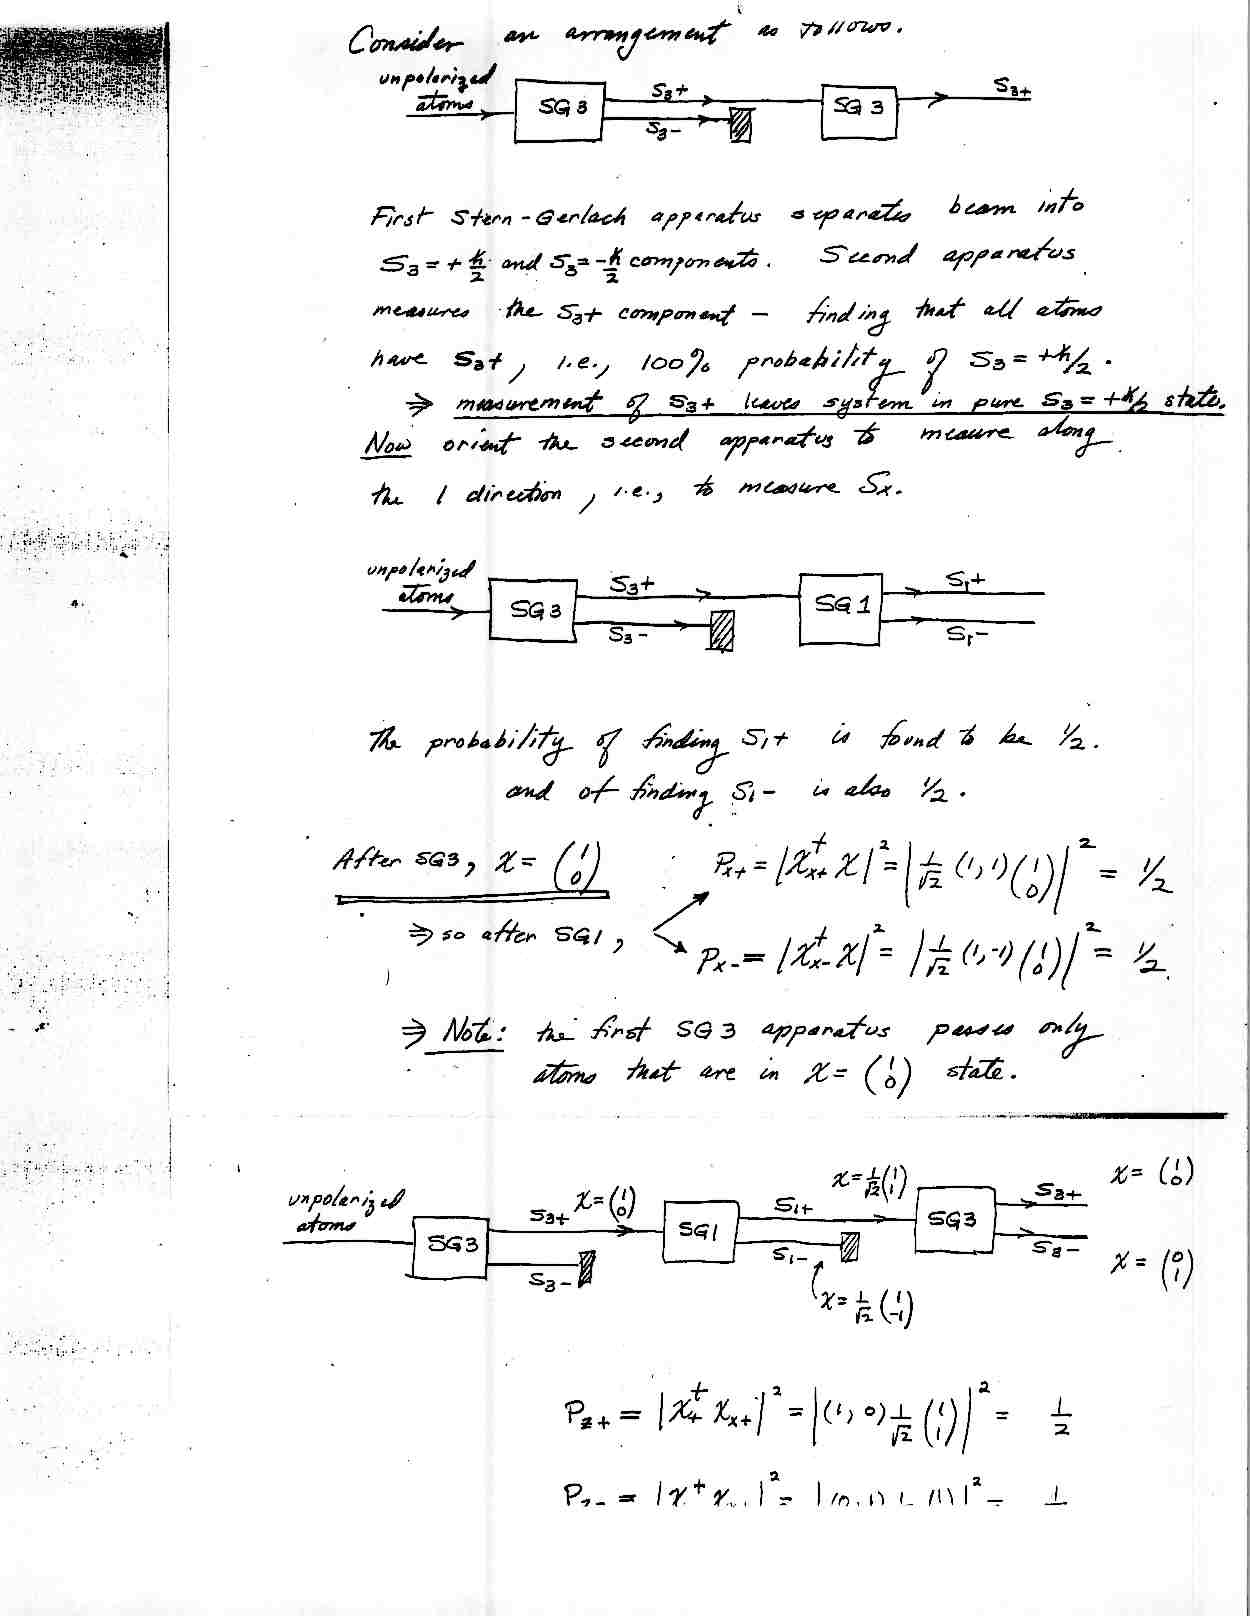 Consider an arrangement as follows.
unpolarized
atoms
SG 3
S₃+
S₃-
SG 3
S₃+
First Stern-Gerlach apparatus separates beam into
S₃ = + ħ/2 and S₃ = - ħ/2 components. Second apparatus
measures the S₃+ component - finding that all atoms
have S₃+, i.e., 100% probability of S₃ = +ħ/2.
⇒ measurement of S₃+ leaves system in pure S₃ = +ħ/2 state.
Now orient the second apparatus to measure along
the 1 direction, i.e., to measure Sx.
unpolarized
atoms
SG 3
S₃+
S₃-
SG 1
S₁+
S₁-
The probability of finding S₁+ is found to be 1/2.
and of finding S₁- is also 1/2.
After SG3, χ = (1 0)
Px+ = |χx+† χ|² = |1/√2 (1, 1)(1 0)|² = 1/2
⇒ so after SG1,
Px- = |χx-† χ|² = |1/√2 (1, -1)(1 0)|² = 1/2
⇒ Note: the first SG3 apparatus passes only
atoms that are in χ = (1 0) state.
unpolarized
atoms
SG3
S₃+
χ = (1 0)
S₃-
SG1
S₁+
χ = 1/√2 (1 1)
S₁-
χ = 1/√2 (1 -1)
SG3
S₃+
χ = (1 0)
S₃-
χ = (0 1)
Pz+ = |χ+† χx+|² = |(1, 0) 1/√2 (1 1)|² = 1/2